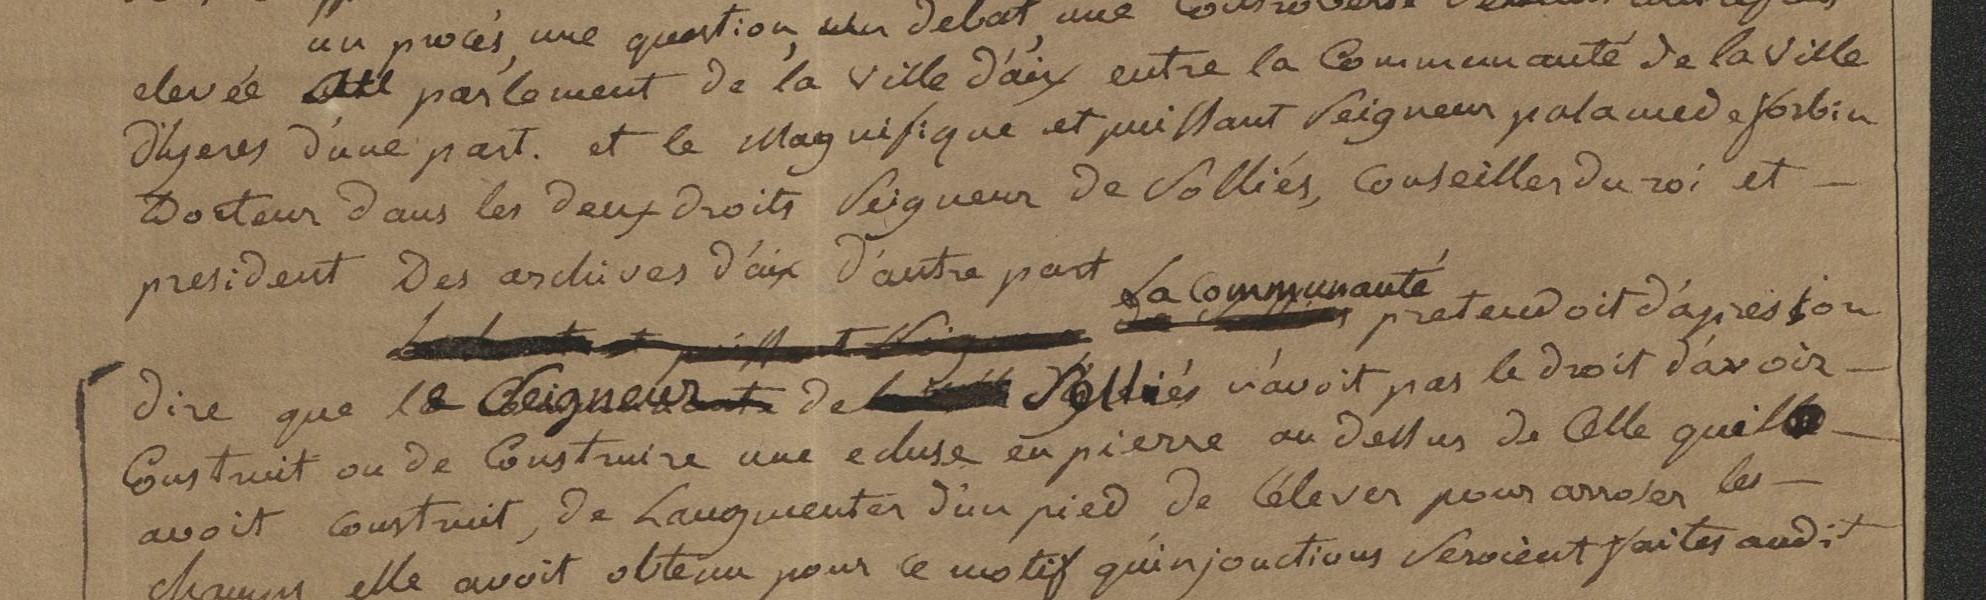 un procés, une question, un debat, une Controverse
elevée au parlement de la ville d'aix entre la Communauté de la ville
d'hyeres d'une part. et le Magnifique et puissant Seigneur palamede forbin
Docteur dans les deux droits Seigneur de Solliés, Conseiller du roi et —
president Des archives d'aix d'autre part
La Communauté
pretendoit d'après son
dire que le Seigneur de Solliés n'avoit pas le droit d'avoir —
Construit ou de Construire une ecluse en pierre au dessus de Celle quelle —
avoit construit, de Laugmenter d'un pied de l'élever pour arroser les —
champs elle avoit obtenu pour ce motif qu'injonctions seroient faites audit